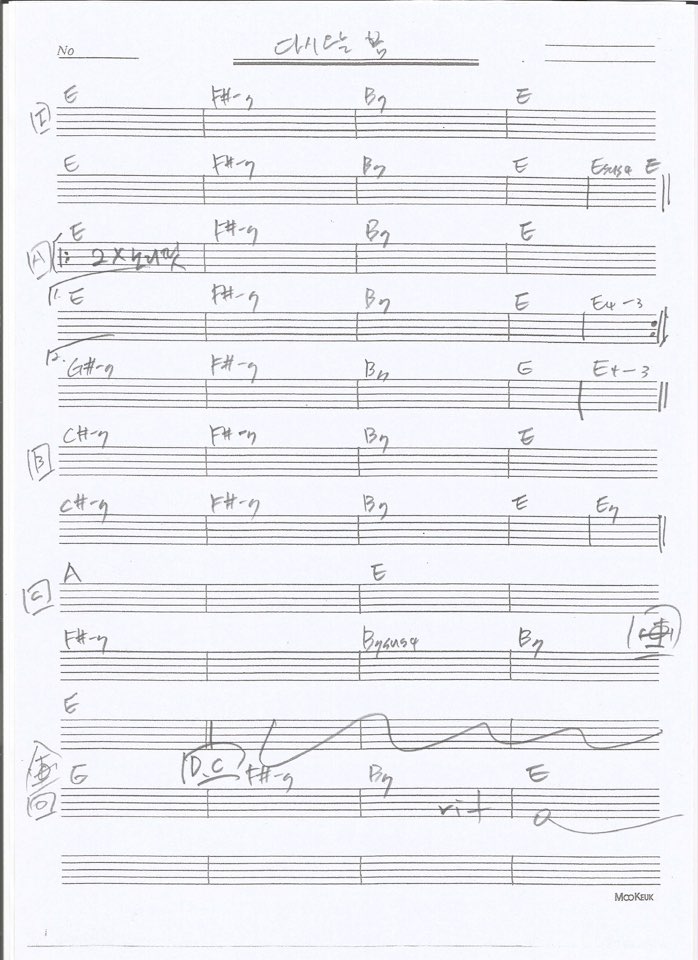 No
다시 오늘 봄
I E F#-7 B7 E
E F#-7 B7 E Esus4 E
A E F#-7 B7 E
2X
1. E F#-7 B7 E E4-3
2. G#-7 F#-7 B7 E E4-3
B C#-7 F#-7 B7 E
C#-7 F#-7 B7 E E7
C A E
F#-7 B7sus4 B7
E
D.C
E F#-7 B7 E
O rit
MOOKEUK